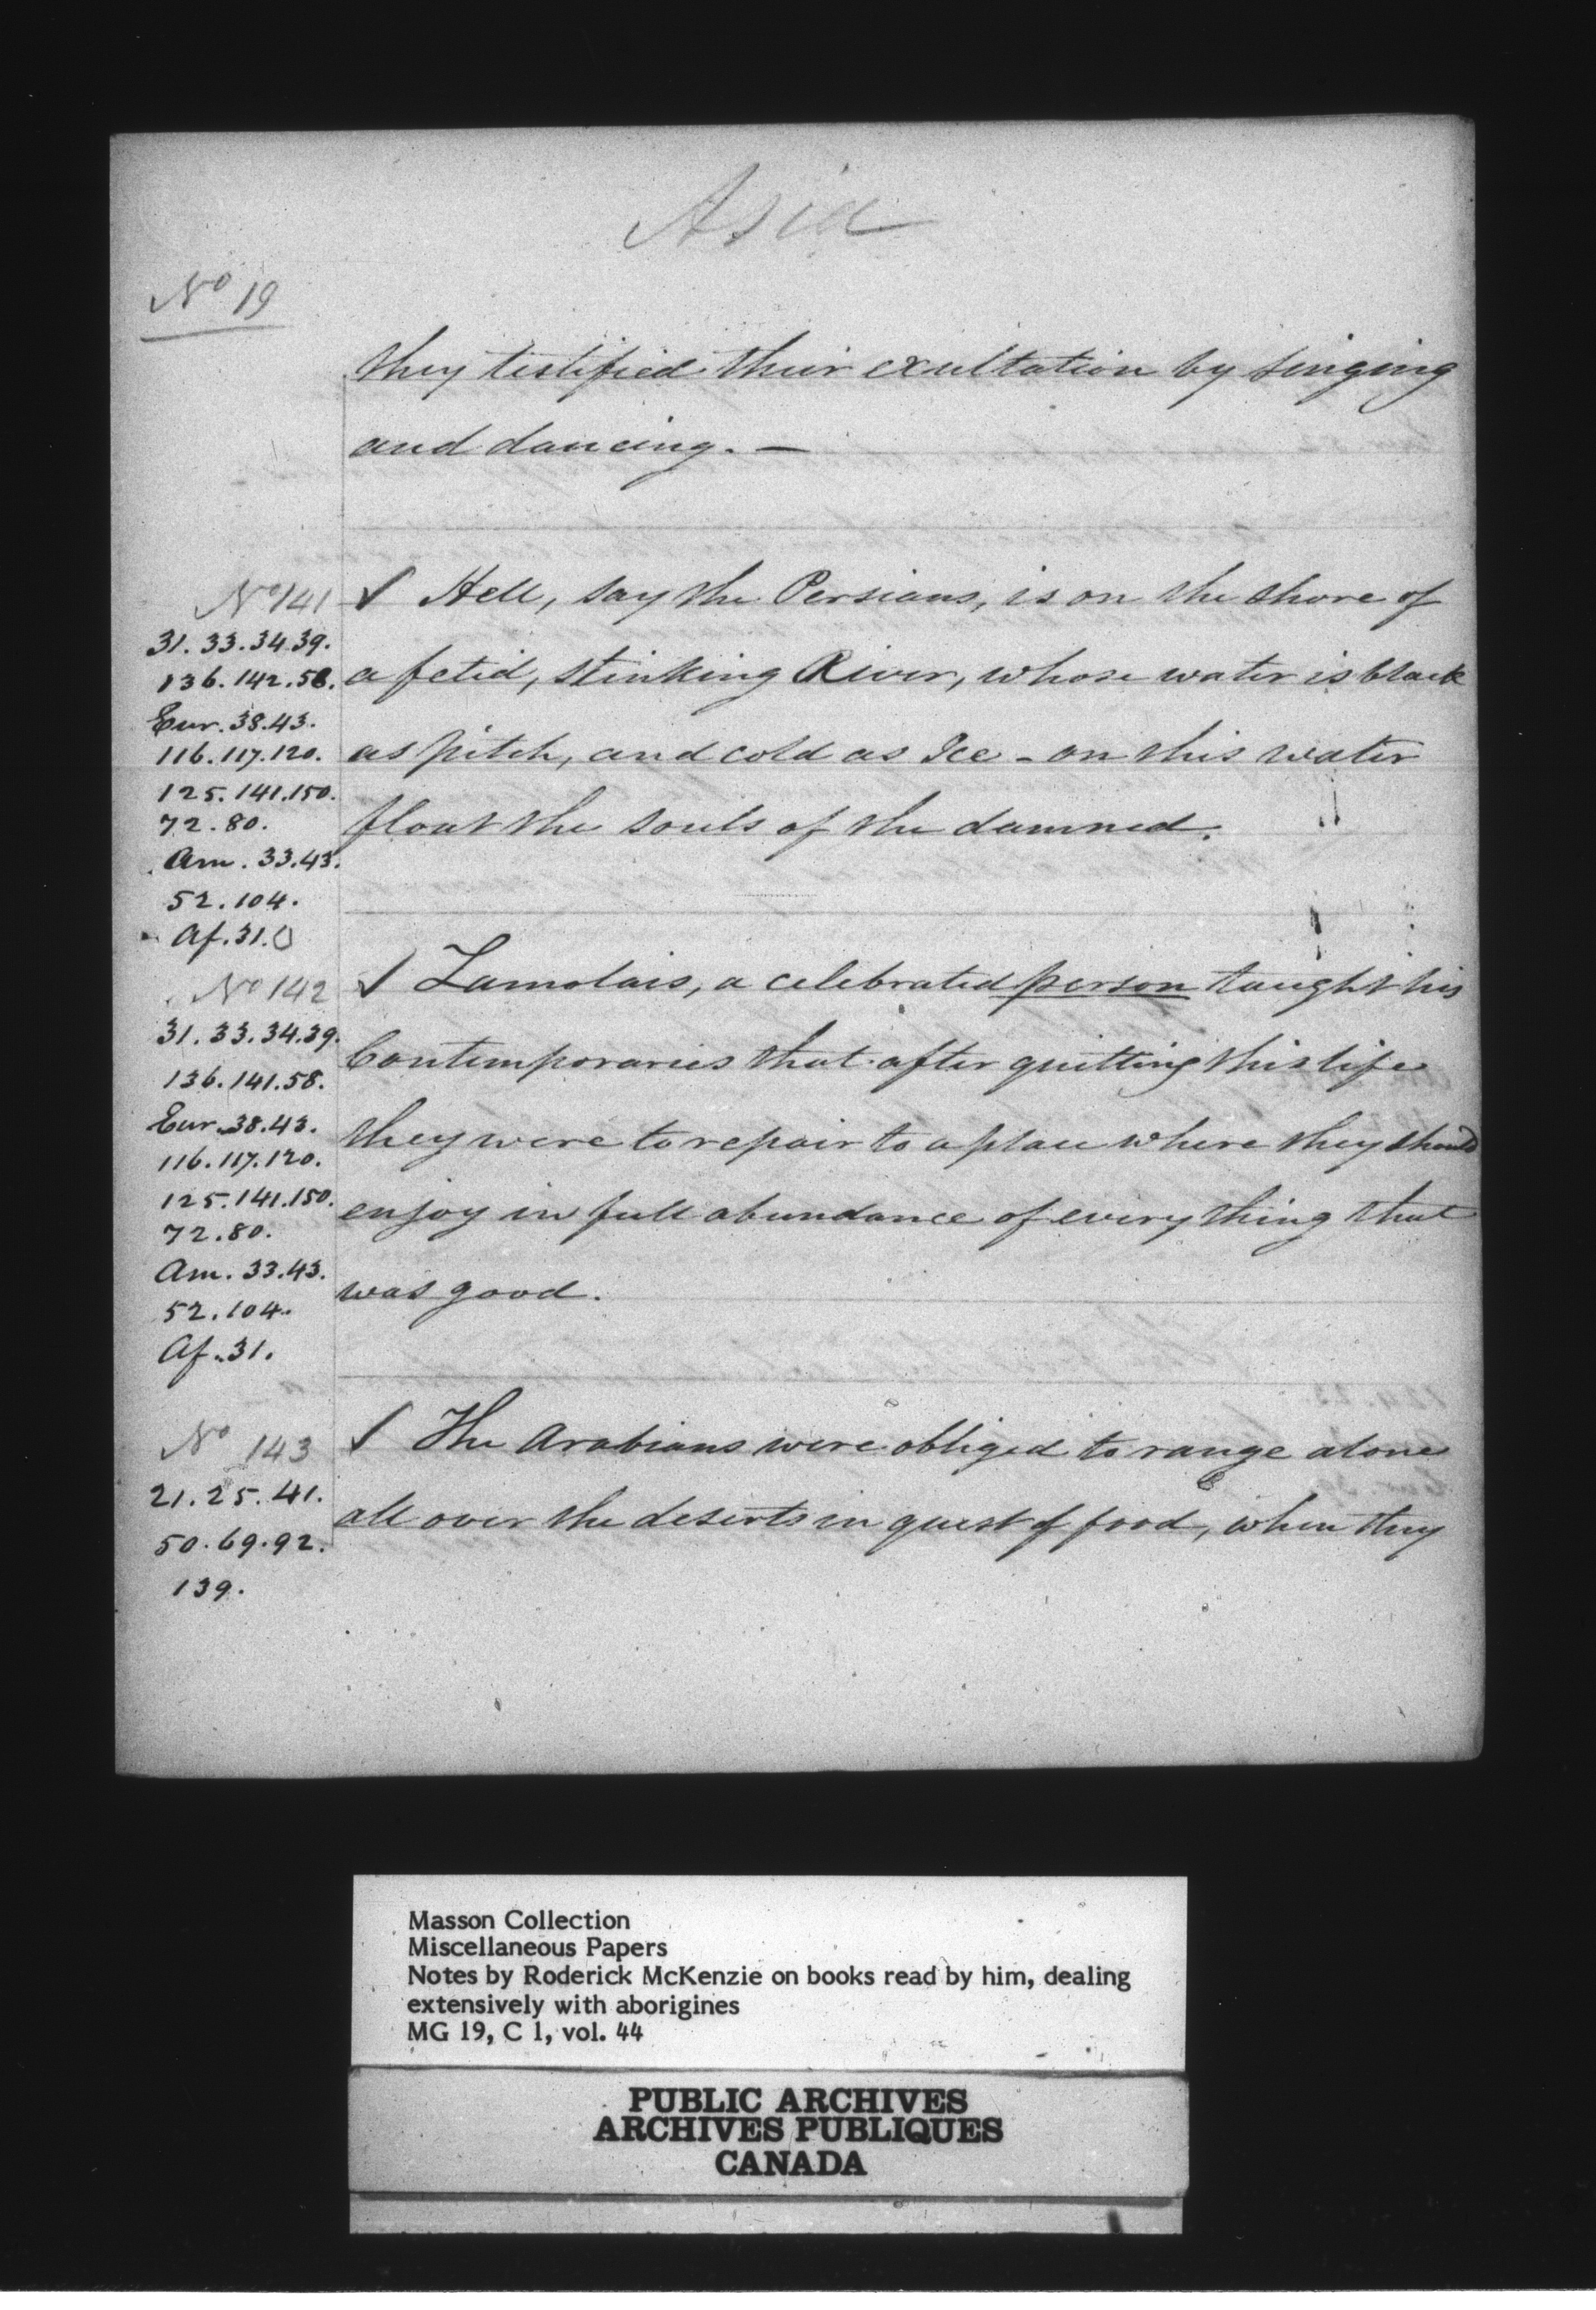 Asia
No 19
they testified their exultation by singing
and dancing. —
No 141
31. 33. 34. 39.
136. 142. 58.
Eur. 38. 43.
116. 117. 120.
125. 141. 150.
72. 80.
Am. 33. 43.
52. 104.
Af. 31.
Hell, say the Persians, is on the shore of
a fetid, stinking River, whose water is black
as pitch, and cold as Ice - on this water
float the souls of the damned.
No 142
31. 33. 34. 39.
136. 141. 58.
Eur. 38. 43.
116. 117. 120.
125. 141. 150.
72. 80.
Am. 33. 43.
52. 104.
Af. 31.
Lamolais, a celebrated person taught his
Contemporaries that after quitting this life
they were to repair to a place where they should
enjoy in full abundance of every thing that
was good.
No 143
21. 25. 41.
50. 69. 92.
139.
The Arabians were obliged to range alone
all over the deserts in quest of food, when they
Masson Collection
Miscellaneous Papers
Notes by Roderick McKenzie on books read by him, dealing
extensively with aborigines
MG 19, C 1, vol. 44
PUBLIC ARCHIVES
ARCHIVES PUBLIQUES
CANADA